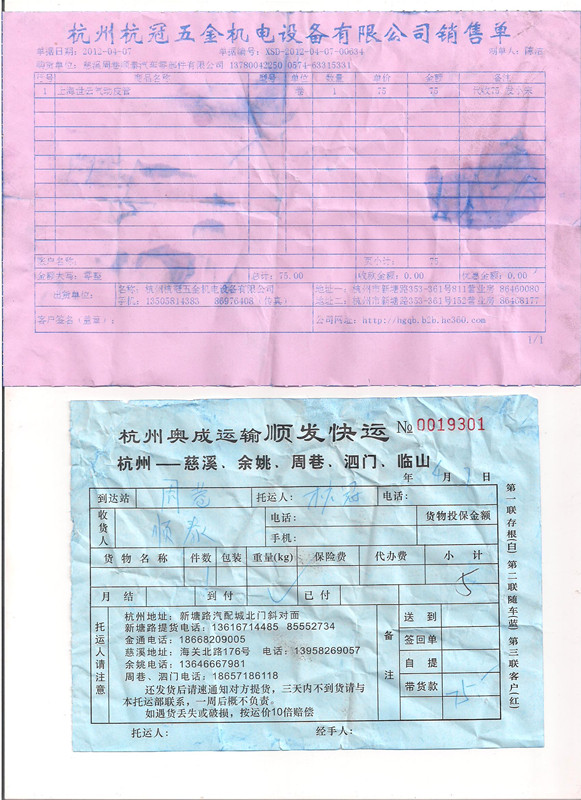 杭州杭冠五金机电设备有限公司销售单
单据日期: 2012-04-07 单据编号: XSD-2012-04-07-00634 制单人:
购货单位: 慈溪周巷 汽车零部件有限公司 13780042250 0574-63315331
序号 商品名称 型号 单位 数量 单价 金额 备注
1 上海 气动 管 卷 1 75 75 代收75
客户名称: 页小计: 75
金额大写: 零整 总计: 75.00 收款金额: 0.00 优惠金额: 0.00
出货单位: 名称: 杭州杭冠五金机电设备有限公司 地址一: 杭州市新塘路353-361号811营业房 86460080
手机: 13505814383 86976408 (传真) 地址二: 杭州市新塘路353-361号152营业房 86408177
客户签名(盖章): 公司网址: http://hgqb.b2b.hc360.com
1/1
杭州奥成运输顺发快运 No 0019301
杭州——慈溪、余姚、周巷、泗门、临山
年 4 月 7 日
到达站 周巷 托运人: 杭冠 电话:
收货人 顺 电话: 货物投保金额
手机:
货物名称 件数 包装 重量(kg) 保险费 代办费 小计
1 5
月结 到付 已付
托运人请注意
杭州地址: 新塘路汽配城北门斜对面
新塘路提货电话: 13616714485 85552734
金通电话: 18668209005
慈溪地址: 海关北路176号 电话: 13958269057
余姚电话: 13646667981
周巷、泗门电话: 18657186118
还发货后请速通知对方提货，三天内不到货请与
本托运部联系，一周后概不负责。
如遇货丢失或破损，按运价10倍赔偿
备注
送到
签回单
自提
带货款 75
托运人: 经手人:
第一联存根(白) 第二联随车(蓝) 第三联客户(红)